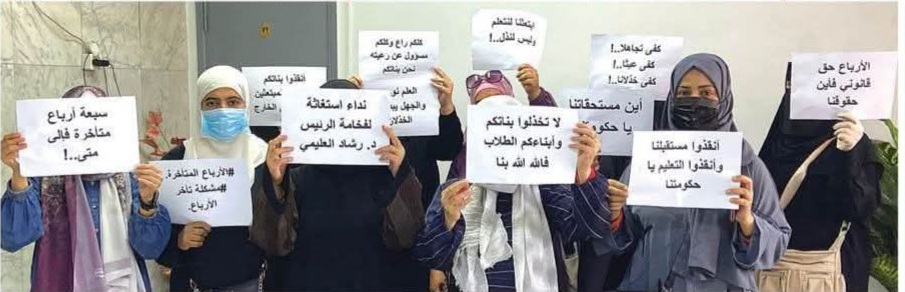 ابتعثنا لنتعلم
وليس لنذل..!
كلكم راع وكلكم
مسؤول عن رعيته
نحن بناتكم
كفى تجاهلا..!
كفى عبثا..!
كفى خذلانا..!
الأرباع حق
قانوني فأين
حقوقنا
أنقذوا بناتكم
المبتعثين
الخارج
العلم نو
والجهل
الخذلا
أين مستحقاتنا
يا حكو
سبعة أرباع
متأخرة فإلى
متى..!
نداء استغاثة
لفخامة الرئيس
د. رشاد العليمي
لا تخذلوا بناتكم
وأبناءكم الطلاب
فالله الله بنا
أنقذوا مستقبلنا
وأنقذوا التعليم يا
حكومتنا
#الأرباع المتأخرة.
#مشكلة تأخر
الأرباع.